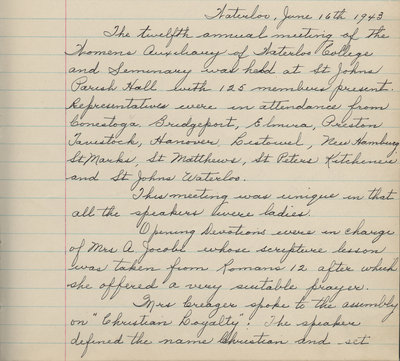 Waterloo, June 16th 1943
The twelfth annual meeting of the
Womens Auxiliary of Waterloo College
and Seminary was held at St Johns
Parish Hall with 125 members present.
Representatives were in attendance from
Conestoga Bridgeport, Elmira, Preston
Tavistock, Hanover, Listowel, New Hamburg
St Marks, St Matthews, St Peters Kitchener
and St Johns Waterloo.
This meeting was unique in that
all the speakers were ladies.
Opening Devotions were in charge
of Mrs A. Jacobi whose scripture lesson
was taken from Romans 12 after which
she offered a very suitable prayer.
Mrs Creager spoke to the assembly
on "Christian Loyalty". The speaker
defined the name Christian and set